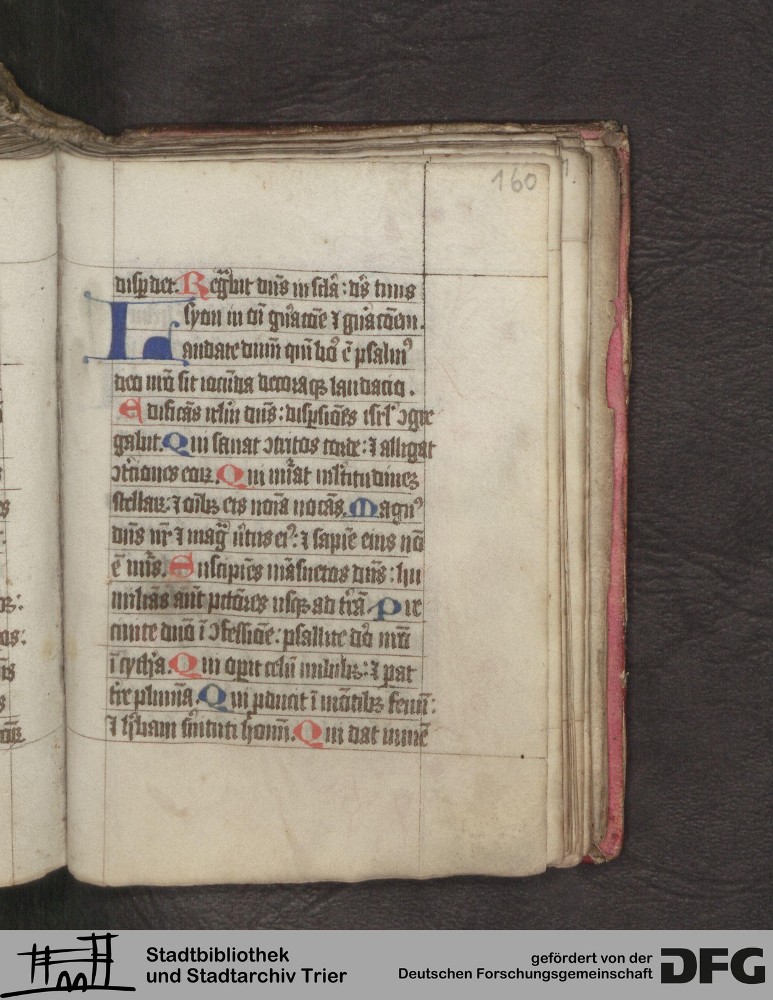 160
disp̄det. Regꝰbit dn̄s in sc̄la: ds̄ tuus
syon in oī gn̄atōe ⁊ gn̄atōem.
Laudate dnūm qm̄ bo᷒ ē psalm᷒
deo nr̄o sit iocūda decoraqꝫ laudacio.
Edificās irl̄m dn̄s: disp̄siōes isrl̄ ꝯgre
gabit. Qui sanat ꝯtritos corde: ⁊ alligat
ꝯtⁱciones eoꝝ. Qui nūⁱat ml̄titudineꝫ
stellaꝝ: ⁊ oībꝫ eis noīa vocās. Magn᷒
dn̄s nr̄ ⁊ magᵃ ūtus ei᷒: ⁊ sapīe eius nō
ē nūs. Suscipiēs māsuetos dn̄s: hu
milias aūt pctōres usqꝫ ad tr̄ā. Pre
cinite dnō ī ꝯfessiōe: psallite dō nr̄o
ī cythᵃa. Qui opit celū nubibꝫ: ⁊ pat
tr̄e pluuiā. Qui pducit ī mōtibꝫ fenū:
⁊ hꝰbam sꝰuituti hoīm. Qui dat iumē
Stadtbibliothek
und Stadtarchiv Trier
gefördert von der
Deutschen Forschungsgemeinschaft
DFG